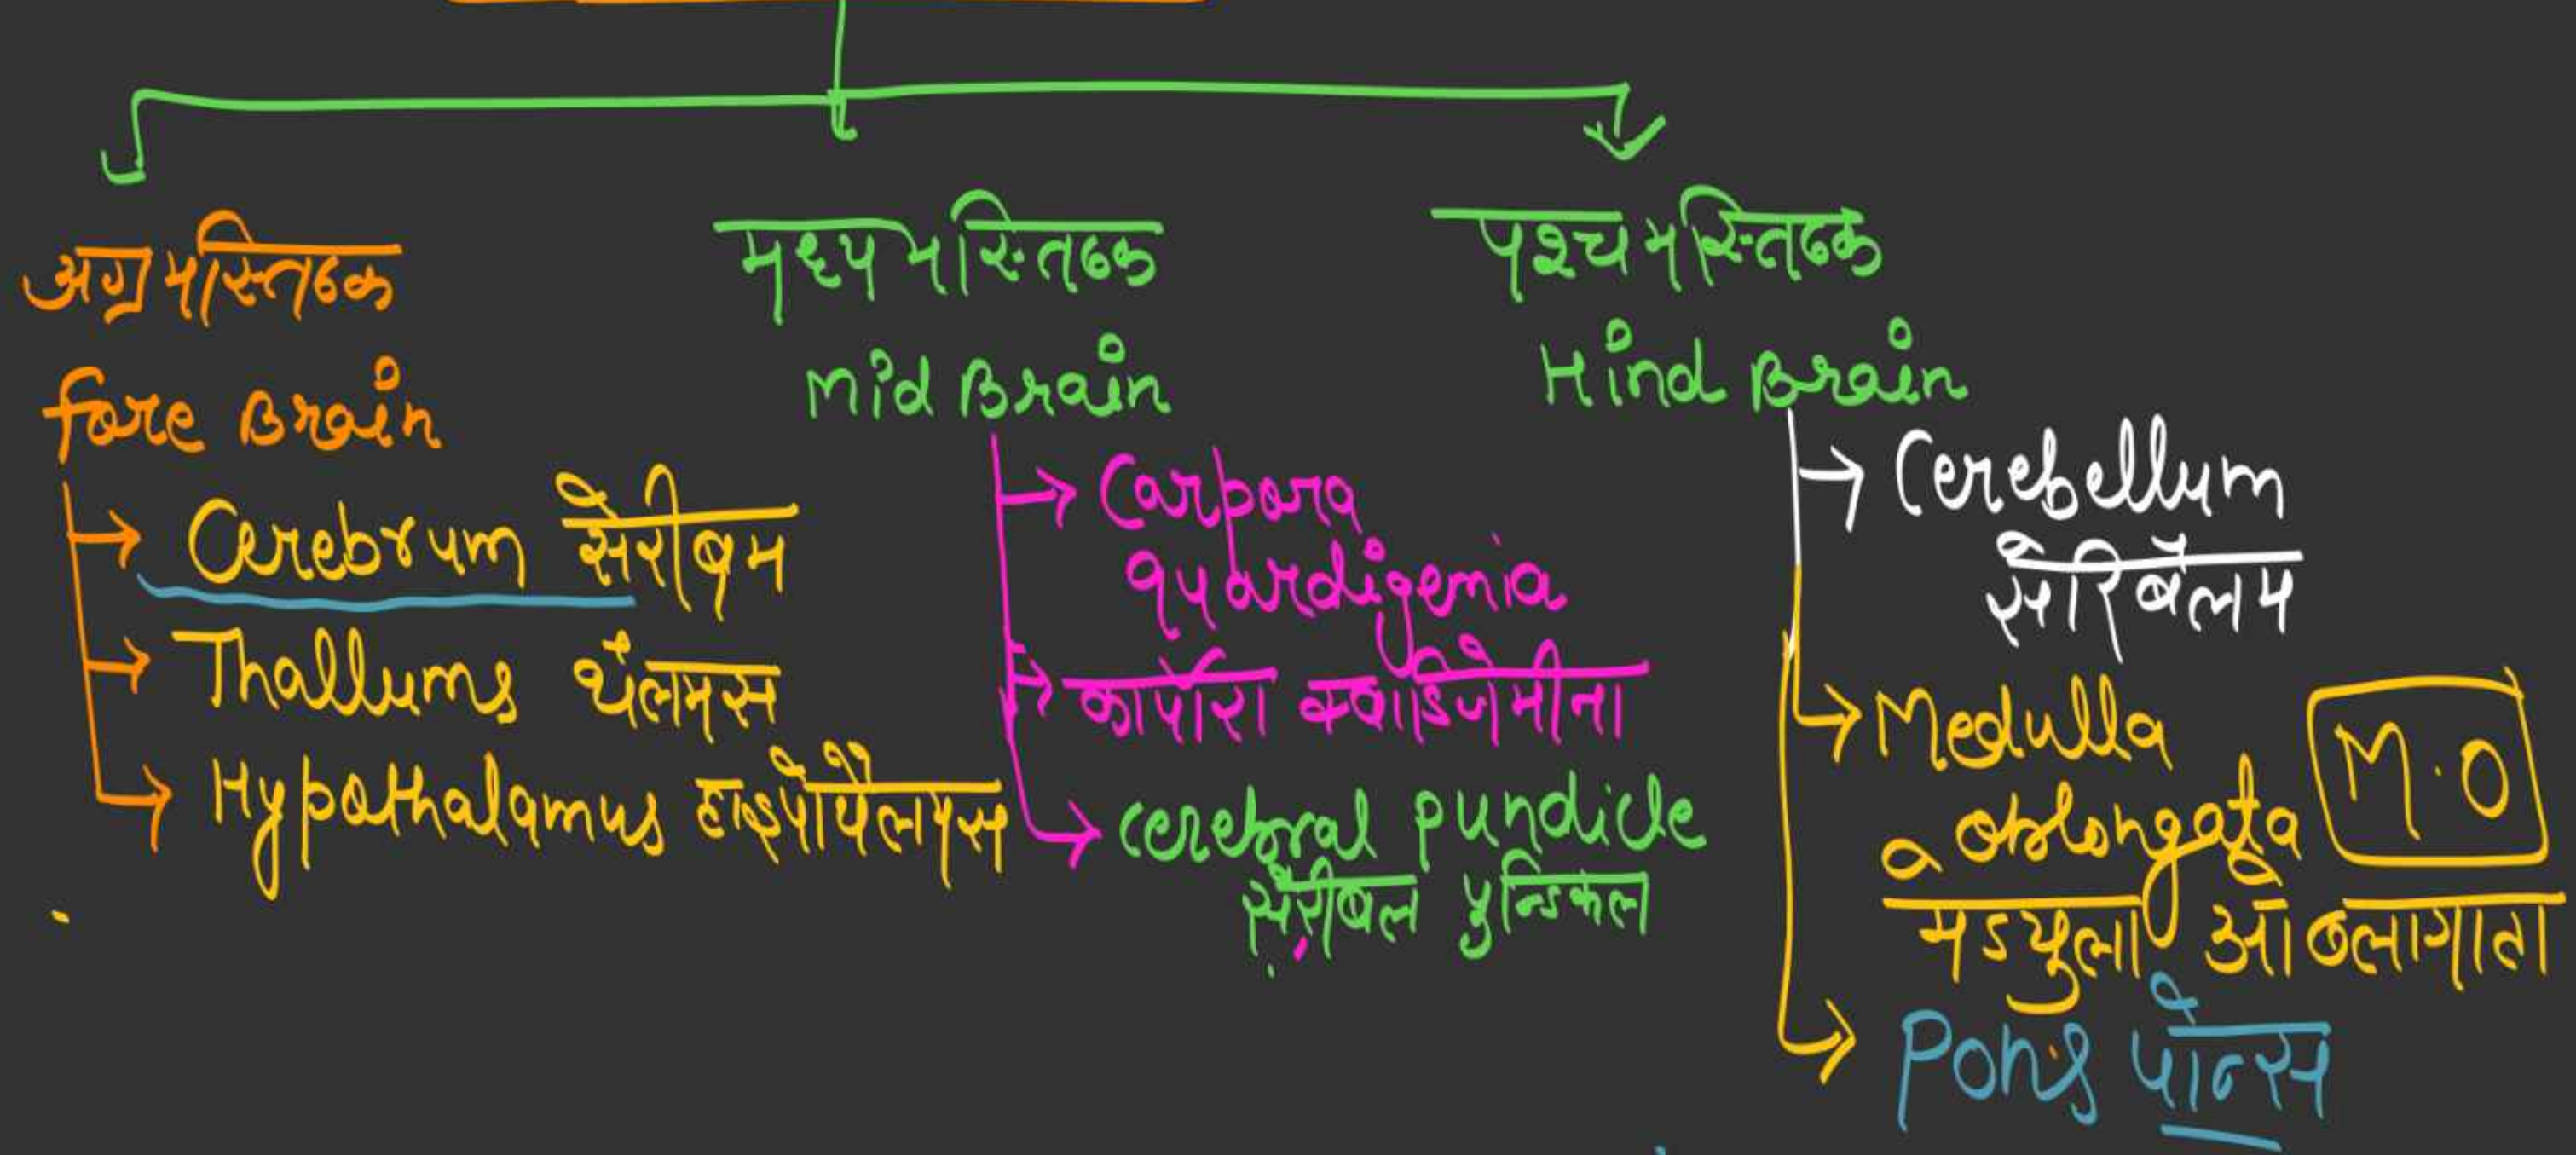 अग्र मस्तिष्क
fore Brain
Cerebrum सेरीब्रम
Thallums थैलमस
Hypothalamus हाइपोथैलमस
मध्य मस्तिष्क
Mid Brain
Carpora
quardigemia
कार्पोरा क्वाडिजेमीना
cerebral pundicle
सैरीबल पुन्डिकल
पश्च मस्तिष्क
Hind Brain
Cerebellum
सेरिबैलम
Medulla
oblongata
M.O
मेड्युला ऑब्लागाता
Pons पोन्स